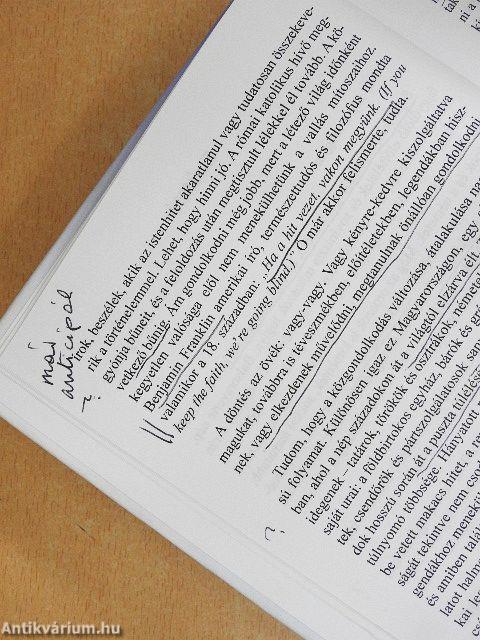 írok, beszélek, akik az istenhitet akaratlanul vagy tudatosan összekeve-
rik a történelemmel. Lehet, hogy hinni jó. A római katolikus hívő meg-
gyónja bűneit, és a feloldozás után megtisztult lélekkel él tovább. A kö-
vetkező bűnig. Ám gondolkodni még jobb, mert a létező világ időnként
kegyetlen valósága elől nem menekülhetünk a vallás mítoszaihoz.
Benjamin Franklin amerikai író, természettudós és filozófus mondta
valamikor a 18. században: „Ha a hit vezet, vakon megyünk. (If you
keep the faith, we're going blind.)" Ő már akkor felismerte, tudta.
A döntés az övék: vagy-vagy. Vagy kényre-kedvre kiszolgáltatva
magukat, továbbra is téveszmékben, előítéletekben, legendákban hisz-
nek, vagy elkezdenek művelődni, megtanulnak önállóan gondolkodni
Tudom, hogy a közgondolkodás változása, átalakulása
sú folyamat. Különösen igaz ez Magyarországon, egy
ban, ahol a nép századokon át a világtól elzárva élt
idegenek – tatárok, törökök és osztrákok, németek
saját urai: a földbirtokos egyház, bárók és
tek, csendőrök és pártszolgálatosok
dok hosszú során át a puszta túlélésé
túlnyomó többsége. Hányatott
be vetett makacs hitet, a
ságát tekintve nem
gendákhoz
és amiben
latot
kai
mai
anticipál
?
?
Antikvárium.hu